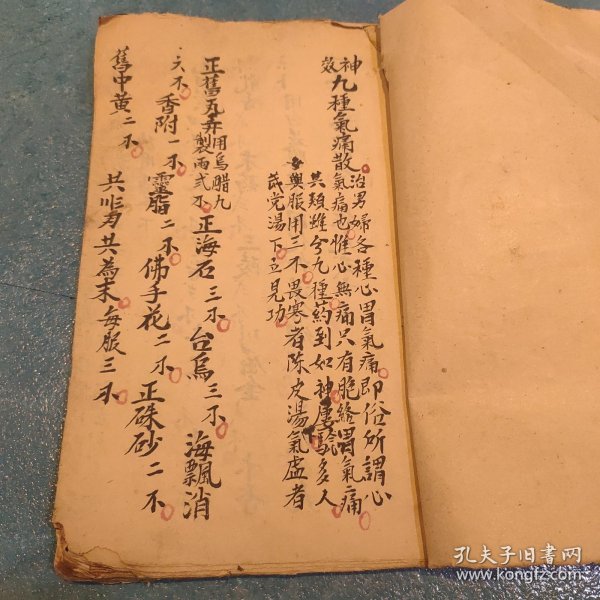 神效九種氣痛散
治男婦各種心胃氣痛即俗所謂心
氣痛也惟心無痛只有胞絡胃氣痛
其類雖分九種藥到如神屢驗多人
與服用三不畏寒者陳皮湯氣虛者
党湯下立見功
正舊瓦弄用烏腊九製兩弍不
正海石三不
台烏三不
海飄消六不
香附一不
靈脂二不
佛手花二不
正硃砂二不
舊中黃二不
共為末每服三不
孔夫子旧书网
www.kongfz.com